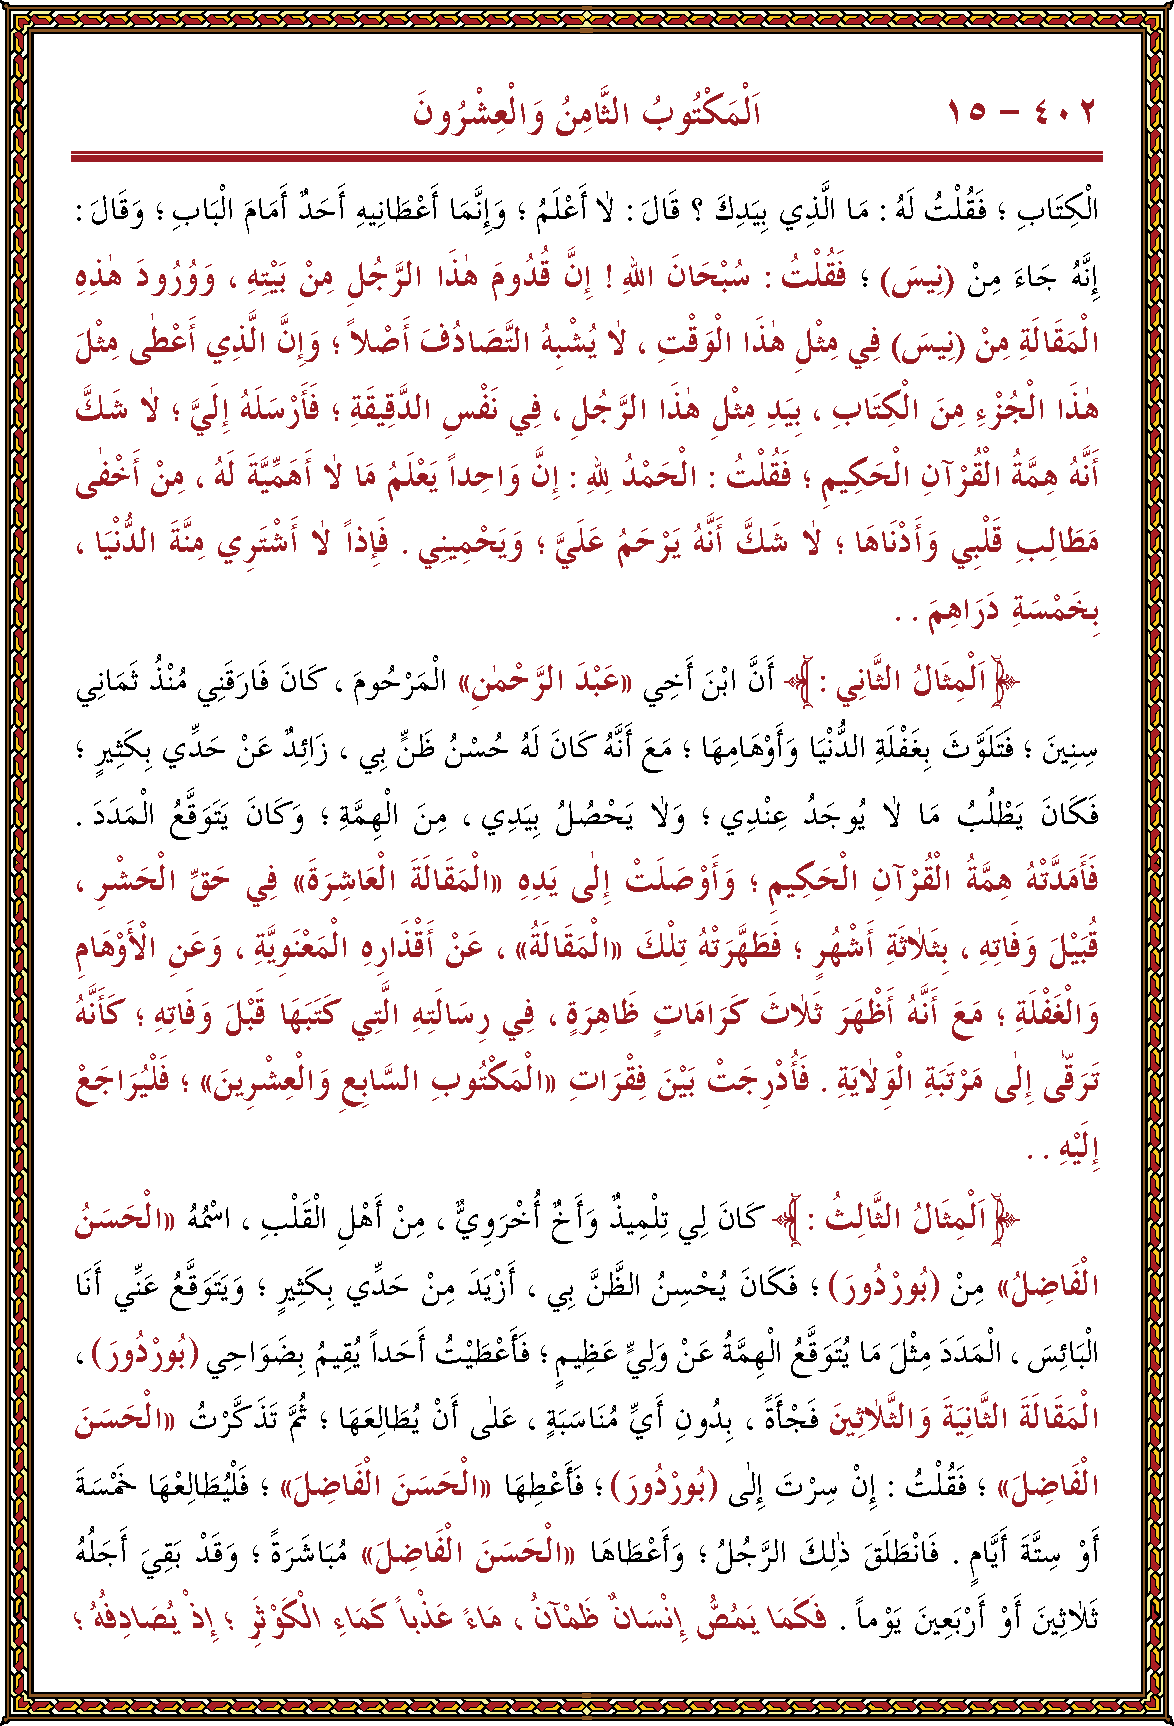 ٤٠٢ – ١٥
اَلْمَكْتُوبُ الثَّامِنُ وَالْعِشْرُونَ
الْكِتَابِ ؛ فَقُلْتُ لَهُ : مَا الَّذِي بِيَدِكَ ؟ قَالَ : لاَ أَعْلَمُ ؛ وَإِنَّمَا أَعْطَانِيهِ أَحَدٌ أَمَامَ الْبَابِ ؛ وَقَالَ :
إِنَّهُ جَاءَ مِنْ (نِيسَ) ؛ فَقُلْتُ : سُبْحَانَ اللهِ ! إِنَّ قُدُومَ هٰذَا الرَّجُلِ مِنْ بَيْتِهِ ، وَوُرُودَ هٰذِهِ
الْمَقَالَةِ مِنْ (نِيسَ) فِي مِثْلِ هٰذَا الْوَقْتِ ، لاَ يُشْبِهُ التَّصَادُفَ أَصْلاً ؛ وَإِنَّ الَّذِي أَعْطٰى مِثْلَ
هٰذَا الْجُزْءِ مِنَ الْكِتَابِ ، بِيَدِ مِثْلِ هٰذَا الرَّجُلِ ، فِي نَفْسِ الدَّقِيقَةِ ؛ فَأَرْسَلَهُ إِلَيَّ ؛ لاَ شَكَّ
أَنَّهُ هِمَّةُ الْقُرْآنِ الْحَكِيمِ ؛ فَقُلْتُ : الْحَمْدُ لِلهِ : إِنَّ وَاحِداً يَعْلَمُ مَا لاَ أَهَمِّيَّةَ لَهُ ، مِنْ أَخْفٰى
مَطَالِبِ قَلْبِي وَأَدْنَاهَا ؛ لاَ شَكَّ أَنَّهُ يَرْحَمُ عَلَيَّ ؛ وَيَحْمِينِي . فَإِذاً لاَ أَشْتَرِي مِنَّةَ الدُّنْيَا ،
بِخَمْسَةِ دَرَاهِمَ . .
﴿اَلْمِثَالُ الثَّانِي :﴾ أَنَّ ابْنَ أَخِي «عَبْدَ الرَّحْمٰنِ» الْمَرْحُومَ ، كَانَ فَارَقَنِي مُنْذُ ثَمَانِي
سِنِينَ ؛ فَتَلَوَّثَ بِغَفْلَةِ الدُّنْيَا وَأَوْهَامِهَا ؛ مَعَ أَنَّهُ كَانَ لَهُ حُسْنُ ظَنٍّ بِي ، زَائِدٌ عَنْ حَدِّي بِكَثِيرٍ ؛
فَكَانَ يَطْلُبُ مَا لاَ يُوجَدُ عِنْدِي ؛ وَلاَ يَحْصُلُ بِيَدِي ، مِنَ الْهِمَّةِ ؛ وَكَانَ يَتَوَقَّعُ الْمَدَدَ .
فَأَمَدَّتْهُ هِمَّةُ الْقُرْآنِ الْحَكِيمِ ؛ وَأَوْصَلَتْ إِلٰى يَدِهِ «الْمَقَالَةَ الْعَاشِرَةَ» فِي حَقِّ الْحَشْرِ ،
قُبَيْلَ وَفَاتِهِ ، بِثَلاَثَةِ أَشْهُرٍ ؛ فَطَهَّرَتْهُ تِلْكَ «الْمَقَالَةُ» ، عَنْ أَقْذَارِهِ الْمَعْنَوِيَّةِ ، وَعَنِ الْأَوْهَامِ
وَالْغَفْلَةِ ؛ مَعَ أَنَّهُ أَظْهَرَ ثَلاَثَ كَرَامَاتٍ ظَاهِرَةٍ ، فِي رِسَالَتِهِ الَّتِي كَتَبَهَا قَبْلَ وَفَاتِهِ ؛ كَأَنَّهُ
تَرَقّٰى إِلٰى مَرْتَبَةِ الْوِلاَيَةِ . فَأُدْرِجَتْ بَيْنَ فِقْرَاتِ «الْمَكْتُوبِ السَّابِعِ وَالْعِشْرِينَ» ؛ فَلْيُرَاجَعْ
إِلَيْهِ . .
﴿اَلْمِثَالُ الثَّالِثُ :﴾ كَانَ لِي تِلْمِيذٌ وَأَخٌ أُخْرَوِيٌّ ، مِنْ أَهْلِ الْقَلْبِ ، اسْمُهُ «الْحَسَنُ
الْفَاضِلُ» مِنْ (بُورْدُورَ) ؛ فَكَانَ يُحْسِنُ الظَّنَّ بِي ، أَزْيَدَ مِنْ حَدِّي بِكَثِيرٍ ؛ وَيَتَوَقَّعُ عَنِّي أَنَا
الْبَائِسَ ، الْمَدَدَ مِثْلَ مَا يُتَوَقَّعُ الْهِمَّةُ عَنْ وَلِيٍّ عَظِيمٍ ؛ فَأَعْطَيْتُ أَحَداً يُقِيمُ بِضَوَاحِي (بُورْدُورَ) ،
الْمَقَالَةَ الثَّانِيَةَ وَالثَّلاَثِينَ فَجْأَةً ، بِدُونِ أَيِّ مُنَاسَبَةٍ ، عَلٰى أَنْ يُطَالِعَهَا ؛ ثُمَّ تَذَكَّرْتُ «الْحَسَنَ
الْفَاضِلَ» ؛ فَقُلْتُ : إِنْ سِرْتَ إِلٰى (بُورْدُورَ) ؛ فَأَعْطِهَا «الْحَسَنَ الْفَاضِلَ» ؛ فَلْيُطَالِعْهَا خَمْسَةَ
أَوْ سِتَّةَ أَيَّامٍ . فَانْطَلَقَ ذٰلِكَ الرَّجُلُ ؛ وَأَعْطَاهَا «الْحَسَنَ الْفَاضِلَ» مُبَاشَرَةً ؛ وَقَدْ بَقِيَ أَجَلُهُ
ثَلاَثِينَ أَوْ أَرْبَعِينَ يَوْماً . فَكَمَا يَمُصُّ إِنْسَانٌ ظَمْآنُ ، مَاءً عَذْباً كَمَاءِ الْكَوْثَرِ ؛ إِذْ يُصَادِفُهُ ؛